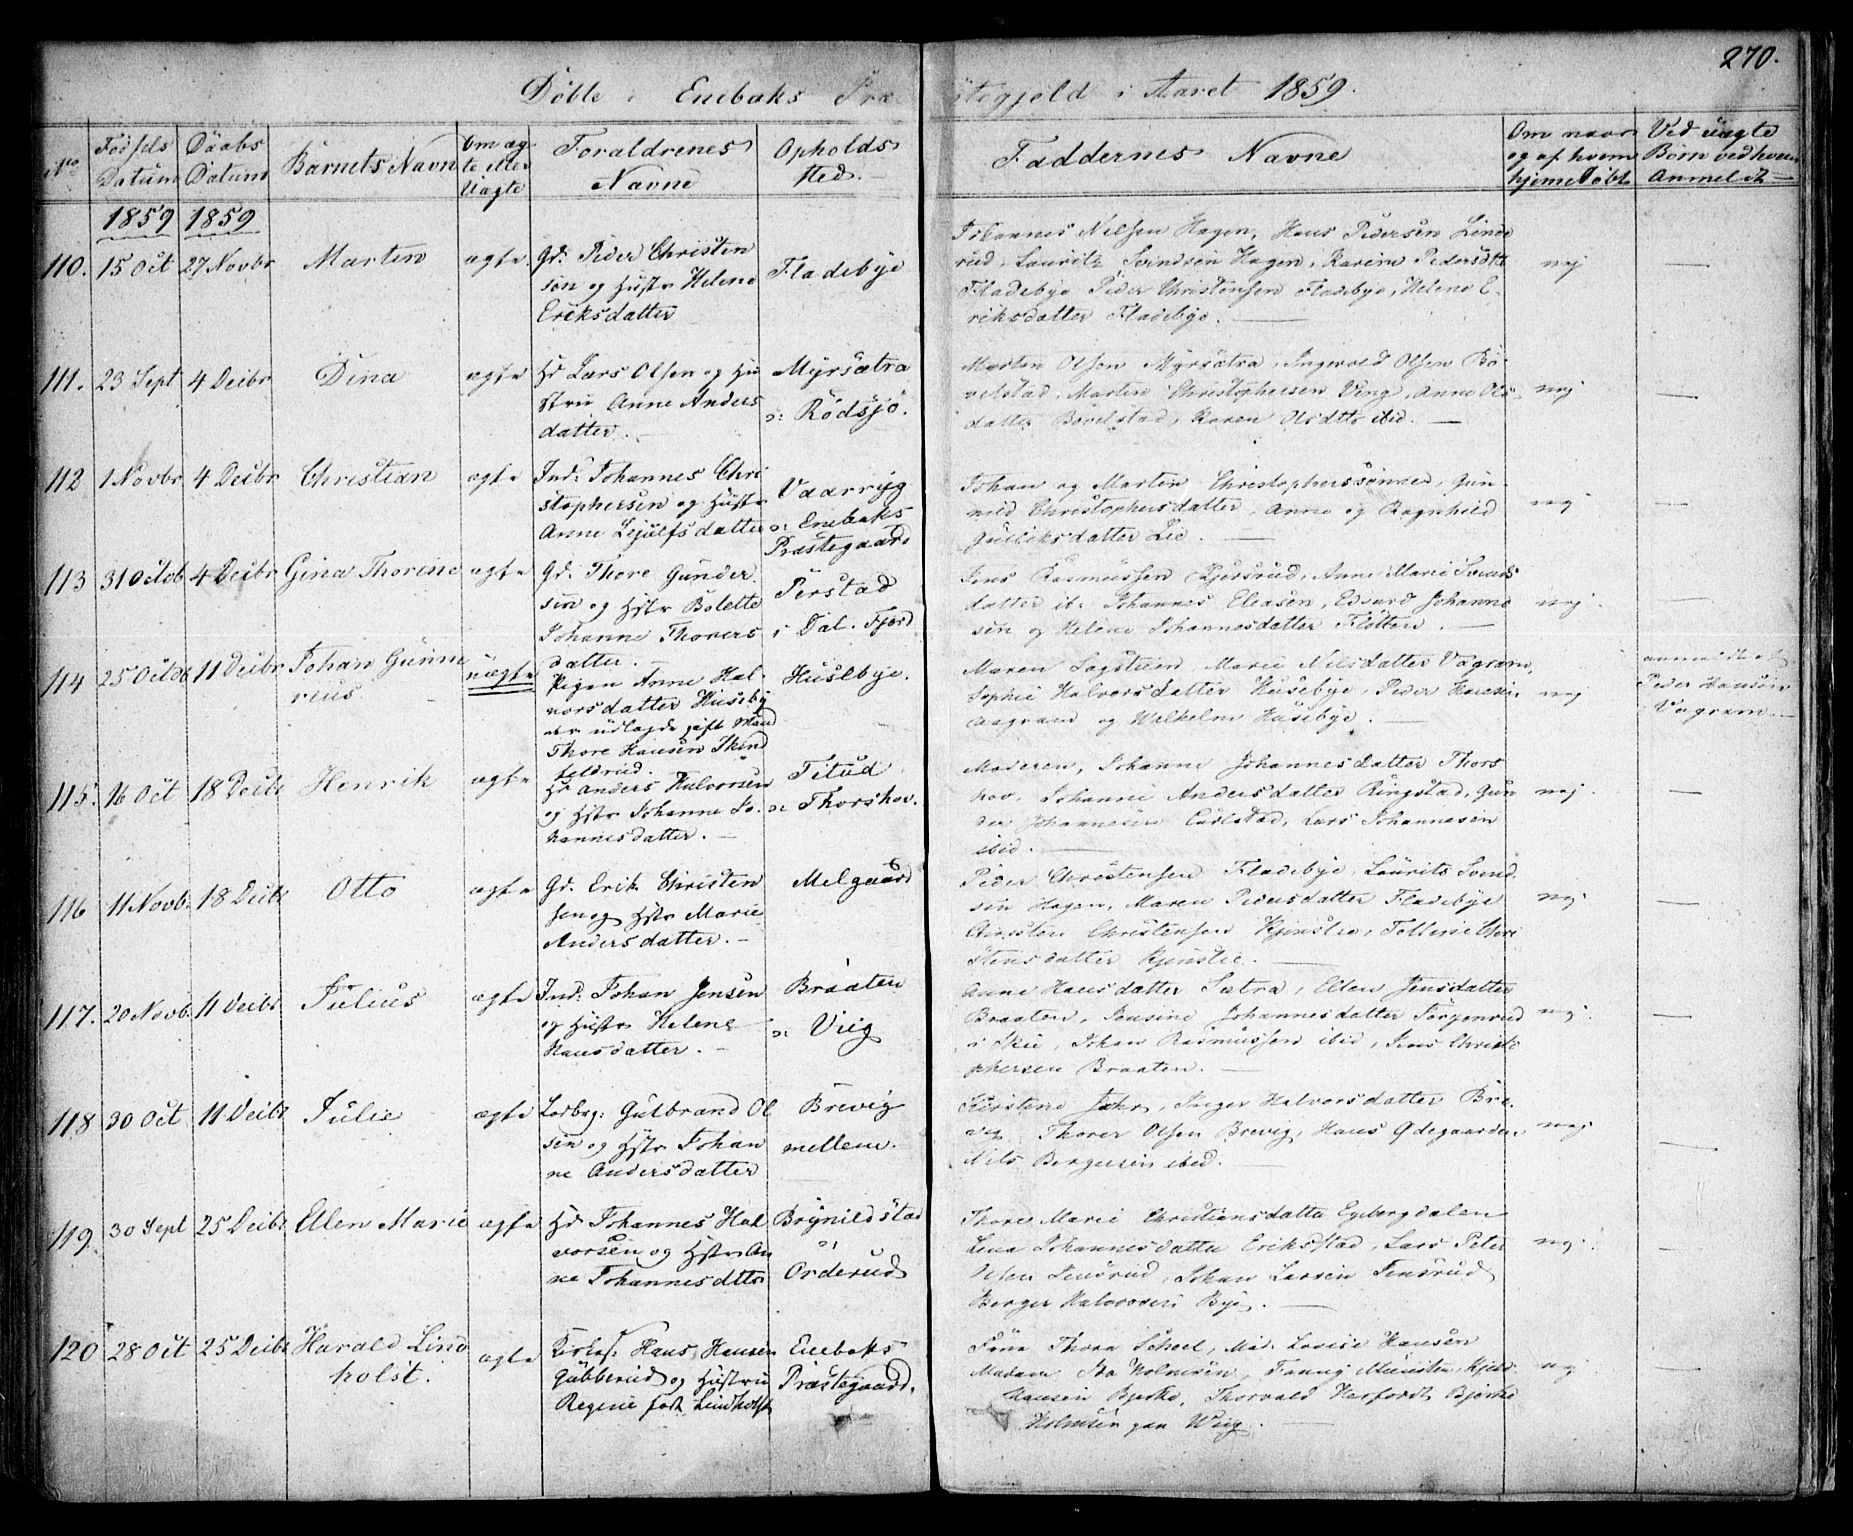 270.
Döbte i Enebaks Præstegjeld i Aaret 1859.
No
Födsels Datum
Daabs Datum
Barnets Navn
Om ægte eller Uægte
Foraldrenes Navne
Opholds Sted.
Faddernes Navne
Om naar og af hvem hjemmedöbt
Ved uægte Börn ved hvem Anmeldt
1859 1859
110. 15 Oct 27 Novbr Marten ægte Gd: Peder Christen
sön og Hustr Helene
Eriksdatter
Fladebye
Johannes Nilsen Hagen, Hans Pedersen Linde
rud, Lauritz Svindsen Hagen, Karine Pedersdtr
Fladebye Peder Christensen Fladebye, Helene E-
riksdatter Fladebye.
nej —
111. 23 Sept 4 Decbr Dina ægte Hd Lars Olsen og Hu
stru Anne Anders
datter. —
Myrsætra
o: Rödsjö.
Marten Olsen Myrsætra, Ingevald Olsen Bö
velstad, Marten Christophersen Ving, Anne Ols
datter Bövelstad, Karen Olsdtr ibid. —
nej —
112 1 Novbr 4 Decbr Christian ægte Ind: Johannes Chri
stophersen og Hustr
Anne Lejulfsdatter
Vaarryg
o: Enebaks
Præstegaard
Johan og Marten Christopherssönner, Gun-
nild Christophersdatter, Anne og Ragnhild
Gulliksdatter Lie. —
nej —
113 31 Octob 4 Decbr Gina Thorine ægte Gd. Thore Gunder
sen og Hstr Bolette
Johanne Thorers
datter.
Perstad
i Dal. Fjerd
Jens Rasmussen Kjersrud, Anne Marie Svends
datter ib: Johannes Eleasen, Edvard Johanne
sen og Helene Johannesdatter Flötten. —
nej —
114 25 Octob 11 Decbr Johan Gunne
rius. uægte
Pigen Anne Hal-
vorsdatter Huseby
udlagde gift Mand
Thore Hansen Skind
feldrud.
Huslbye.
Maren Sagstuen Marie Nilsdatter Vagram,
Sophie Halvorsdatter Husebye, Peder Hansen
Vagram og Wilhelm Husebye. —
nej
anmeldt af
Peder Hansen
Vagram. —
115. 16 Oct 18 Decbr Henrik ægte Hd Anders Halvorsen
og Hstr Johanne Jo-
hannesdatter. —
Tetud
o: Thorshov.
Moderen, Johanne Johannesdatter Thors
hov, Johanne Andersdatter Ringstad, Gun
der Johannesen Carlstad, Lars Johannesen
ibid. —
nej. —
116 11 Novb. 18 Decbr Otto ægte Gd. Erik Christen
sen og Hstr Marie
Andersdatter. —
Melgaard
Peder Christensen Fladebye, Laurits Svend
sen Hagen, Maren Pedersdatter Fladebye
Christen Christensen Kjinslie, Chri
stensdatter Kjinslie. —
nej. —
117. 20 Novb. 11 Decbr Julius ægte Ind: Johan Jensen
og Hustr Helene
Hansdatter. —
Braaten
o: Viig
Anne Hansdatter Sætra, Ellen Jensdatter
Braaten, Jensine Johannesdatter Törgenrud
i Skie, Johan Rasmussen ibid, Jens Christo
phersen Braaten. —
nej. —
118 30 Oct 11 Decbr Julie ægte Lodbog: Gulbrand Ol
sen og Hstr Johan
ne Andersdatter
Brevig
mellem.
Kirstine Jahr, Inger Halvorsdatter Bre-
vig Thorer Olsen Brevig, Hans Ödegaarden,
Nils Bergersen ibid. —
nej. —
119. 30 Sept 25 Decbr Ellen Marie ægte Hd Johannes Hal
vorsen og Hstr An
ne Johannesdttr
Brynildstad
o:
Orderud
Thore Marie Christiansdatter Egebergdalen
Lina Johannesdatter Eriksstad, Lars Peter
Olsen Jensrud, Johan Larsen Jensrud
Berger Halvorsen Bye. —
nej. —
120 28 Oct 25 Decbr Harald Lind
holst. ægte
Kirkes: Hans Hansen
Gubberud og Hustru
Regine födt Lindholst
Enebaks
Præstegaard.
Fröna Thora Scheel, Mad. Lovise Hansen
Madam Ida Holmsen, Fanny Munster, Kjeld
Hansen Bjerke, Thorvald Herfordt Bjerke
Holmsen paa Wiig. —
nej —